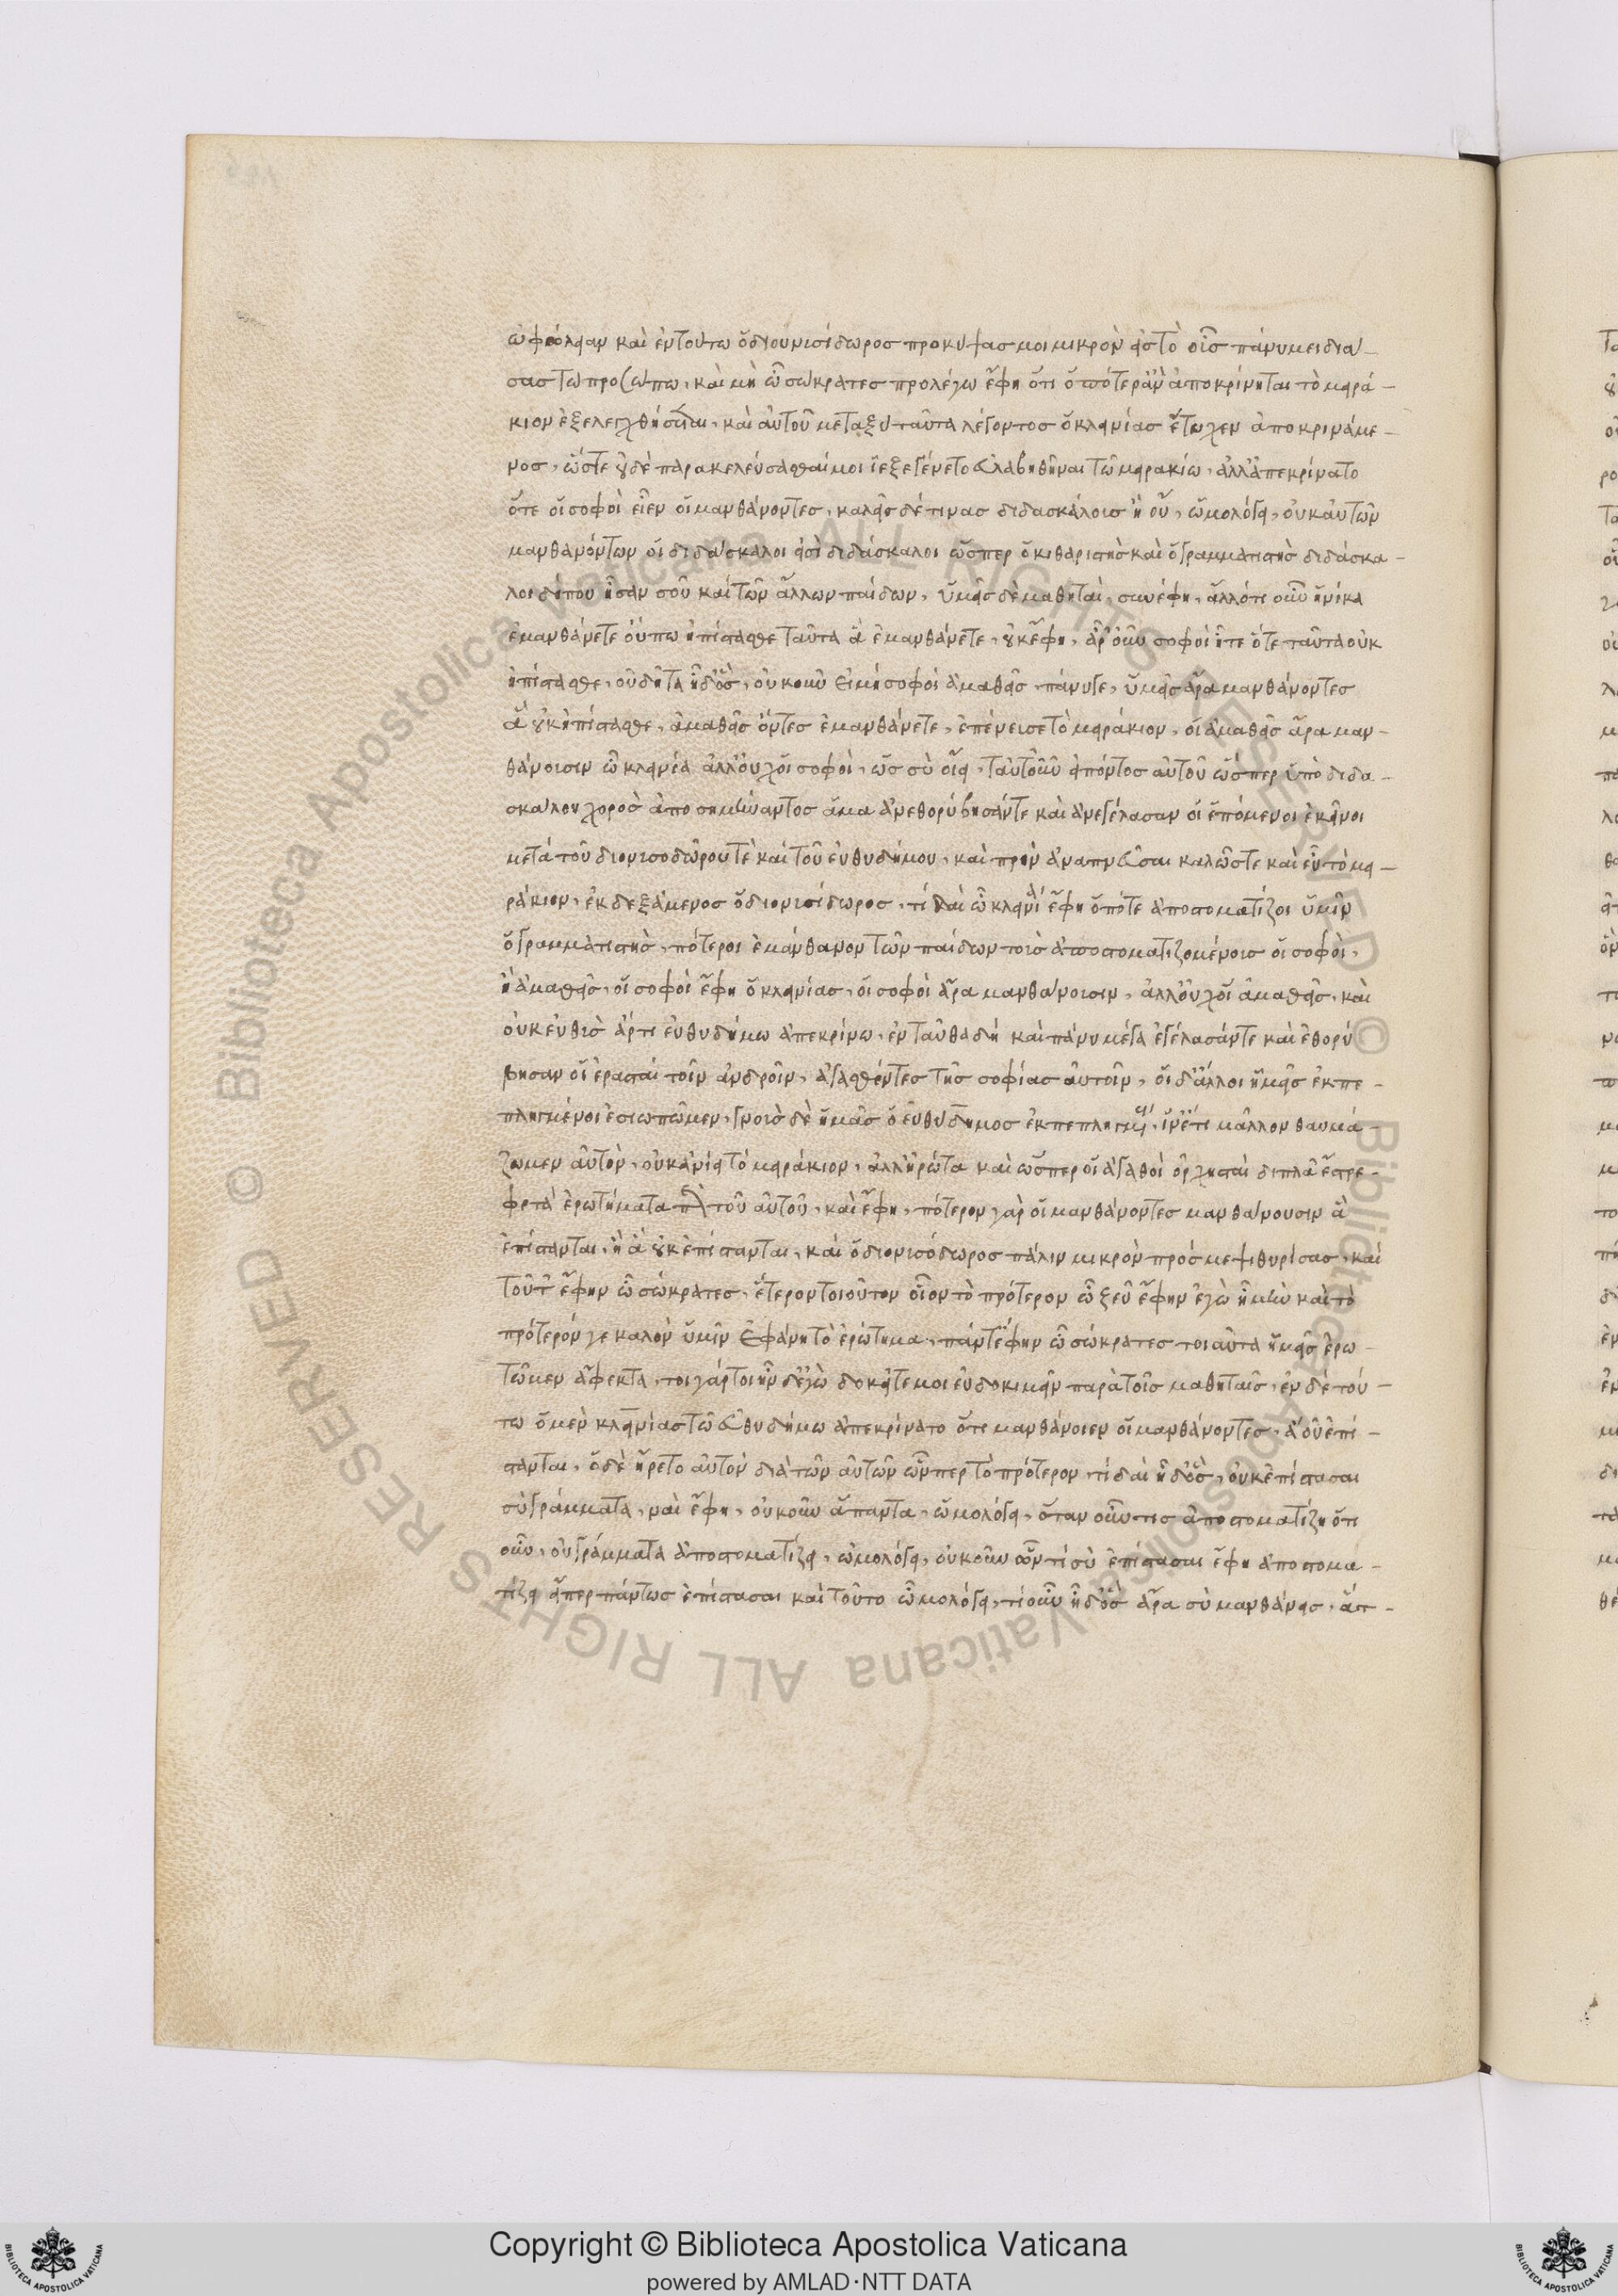 ὠφεόλειαν καὶ ἐν τούτω ὁ διουνισίδωρος προκύψας μοι μικρὸν εἰς τὸ οὖς πάνυ μειδιά-
σας τῶ προσώπω, καὶ μὴ ὦ σώκρατες προλέγω ἔφη ὅτι ὁπότερ᾽ ἂν ἀποκρίνηται τὸ μειρά-
κιον ἐξελεγχθήσεται, καὶ αὐτοῦ μεταξὺ ταῦτα λέγοντος ὁ κλεινίας ἔτυχεν ἀποκρινάμε-
νος, ὥστε οὐδὲ παρακελεύσασθαί μοι ἐξεγένετο εὐλαβηθῆναι τῶ μειρακίω, ἀλλ᾽ ἀπεκρίνατο
ὅτι οἱ σοφοὶ εἶεν οἱ μανθάνοντες, καλεῖς δέ τινας διδασκάλοις ἢ οὔ, ὡμολόγει, οὐκ αὐτῶν
μανθανόντων οἱ διδάσκαλοι εἰσὶ διδάσκαλοι ὥσπερ ὁ κιθαριστὴς καὶ ὁ γραμματιστὴς διδάσκα-
λοι δήπου ἦσαν σοῦ καὶ τῶν ἄλλων παίδων, ὑμεῖς δὲ μαθηταὶ, συνέφη, ἄλλό τι οὖν ἡνίκα
ἐμανθάνετε οὔπω ἠπίστασθε ταῦτα ἃ ἐμανθάνετε, οὐκ ἔφη, ἆρ᾽ οὖν σοφοὶ ἦτε ὅτε ταῦτα οὐκ
ἠπίστασθε, οὐ δῆτα ἦ δ᾽ ὅς, οὐκοῦν εἰ μὴ σοφοὶ ἀμαθεῖς, πάνυ γε, ὑμεῖς ἄρα μανθάνοντες
ἃ οὐκ ἠπίστασθε, ἀμαθεῖς ὄντες ἐμανθάνετε, ἐπένευσε τὸ μειράκιον, οἱ ἀμαθεῖς ἄρα μαν-
θάνοισιν ὦ κλεινία ἀλλ᾽ οὐχ οἱ σοφοὶ, ὡς σὺ οἴει, ταῦτ᾽ οὖν εἰπόντος αὐτοῦ ὥσπερ ὑπὸ διδα-
σκάλου χορὸς ἀποσημήναντος ἅμα ἀνεθορύβησάν τε καὶ ἀνεγέλασαν οἱ ἑπόμενοι ἐκεῖνοι
μετὰ τοῦ διονισοδώρου τὲ καὶ τοῦ εὐθυδήμου, καὶ πρὶν ἀναπνεῦσαι καλῶς τε καὶ εὖ τὸ μει-
ράκιον, ἐκδεξάμενος ὁ διονισίδωρος, τί δαὶ ὦ κλεινία ἔφη ὁπότε ἀποστοματίζοι ὑμῖν
ὁ γραμματιστὴς, πότεροι ἐμάνθανον τῶν παίδων τοὶς ἀποστοματιζομένοις οἱ σοφοὶ,
ἢ ἀμαθεῖς, οἱ σοφοὶ ἔφη ὁ κλεινίας, οἱ σοφοὶ ἄρα μανθάνοισιν, ἀλλ᾽ οὐχ οἱ ἀμαθεῖς, καὶ
οὐκ εὐθὶς ἄρτι εὐθυδήμω ἀπεκρίνω, ἐνταῦθα δὴ καὶ πάνυ μέγα ἐγέλασάν τε καὶ ἐθορύ
βησαν οἱ ἐρασταὶ τοῖν ἀνδροῖν, ἀγασθέντες τῆς σοφίας αὐτοῖν, οἱ δ᾽ ἄλλοι ἡμεῖς ἐκπε-
πληγμένοι ἐσιωπῶμεν, γνοὶς δὲ ἡμᾶς ὁ εὐθύδημος ἐκπεπληγμένους, ἵν᾽ ἔτι μᾶλλον θαυμά-
ζωμεν αὐτὸν, οὐκ ἀνίει τὸ μειράκιον, ἀλλ᾽ ἠρώτα καὶ ὥσπερ οἱ ἀγαθοὶ ὀρχησταὶ διπλᾶ ἔστρε-
φε τὰ ἐρωτήματα περὶ τοῦ αὐτοῦ, καὶ ἔφη, πότερον γὰρ οἱ μανθάνοντες μανθάνουσιν ἃ
ἐπίστανται, ἢ ἃ οὐκ ἐπίστανται, καὶ ὁ διονισόδωρος πάλιν μικρὸν πρός με ψιθυρίσας, καὶ
τοῦτ᾽ ἔφην ὦ σώκρατες, ἕτερον τοιοῦτον οἷον τὸ πρότερον ὦ ζεῦ ἔφην ἐγὼ ἦ μὴν καὶ τὸ
πρότερόν γε καλὸν ὑμῖν ἐφάνη τὸ ἐρώτημα, πάντ᾽ ἔφην ὦ σώκρατες τοιαῦτα ἡμεῖς ἐρω-
τῶμεν ἄφεκτα, τοιγάρτοι ἦν δ᾽ ἐγὼ δοκεῖτε μοι εὐδοκιμεῖν παρὰ τοῖς μαθηταῖς, ἐν δὲ τού-
τω ὁ μὲν κλεινίας τῶ εὐθυδήμω ἀπεκρίνατο ὅτι μανθάνοιεν οἱ μανθάνοντες, ἃ οὐκ ἐπί-
στανται, ὁ δὲ ἤρετο αὐτὸν διὰ τῶν αὐτῶν ὧνπερ τὸ πρότερον, τί δαὶ ἦ δ᾽ ὃς, οὐκ ἐπίστασαι
σὺ γράμματα, ναὶ ἔφη, οὐκοῦν ἅπαντα, ὡμολόγει, ὅταν οὖν τις ἀποστοματίζη ὅτι
οὖν, οὐ γράμματα ἀποστοματίζει, ὡμολόγει, οὐκοῦν ὧν τί σὺ ἐπίστασαι ἔφη ἀποστομα-
τίζει εἴπερ πάντως ἐπίστασαι καὶ τοῦτο ὡμολόγει, τί οὖν ἦ δ᾽ ὃς ἆρα σὺ μανθάνεις, ἅττ-
Copyright © Biblioteca Apostolica Vaticana
powered by AMLAD·NTT DATA